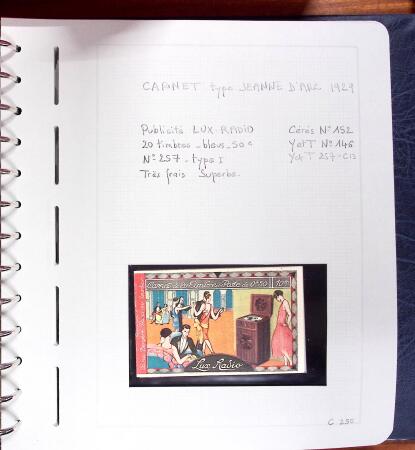 CARNET type JEANNE D'ARC 1929
Publicité LUX-RADIO Cérés N° 152
20 timbres - bleus - 50 c Y et T N° 146
N° 257 - type I Y et T 257-C13
Très frais Superbe.
Carnet de 20 Timbres-Poste de 0f50 10fr
Lux Radio
C 250